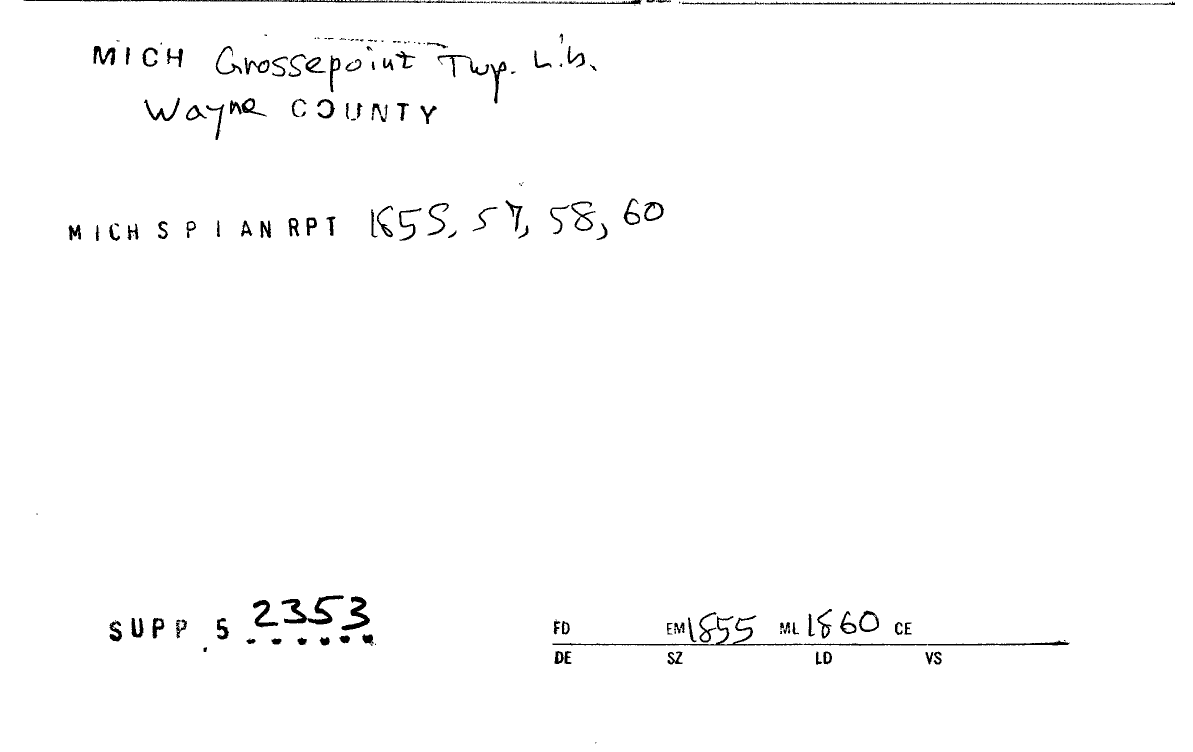 MICH Grossepoint Twp. Lib.
Wayne COUNTY
MICH S P I AN RPT 1855, 57, 58, 60
SUPP. 5 2353
FD EM 1855 ML 1860 CE
DE SZ LD VS